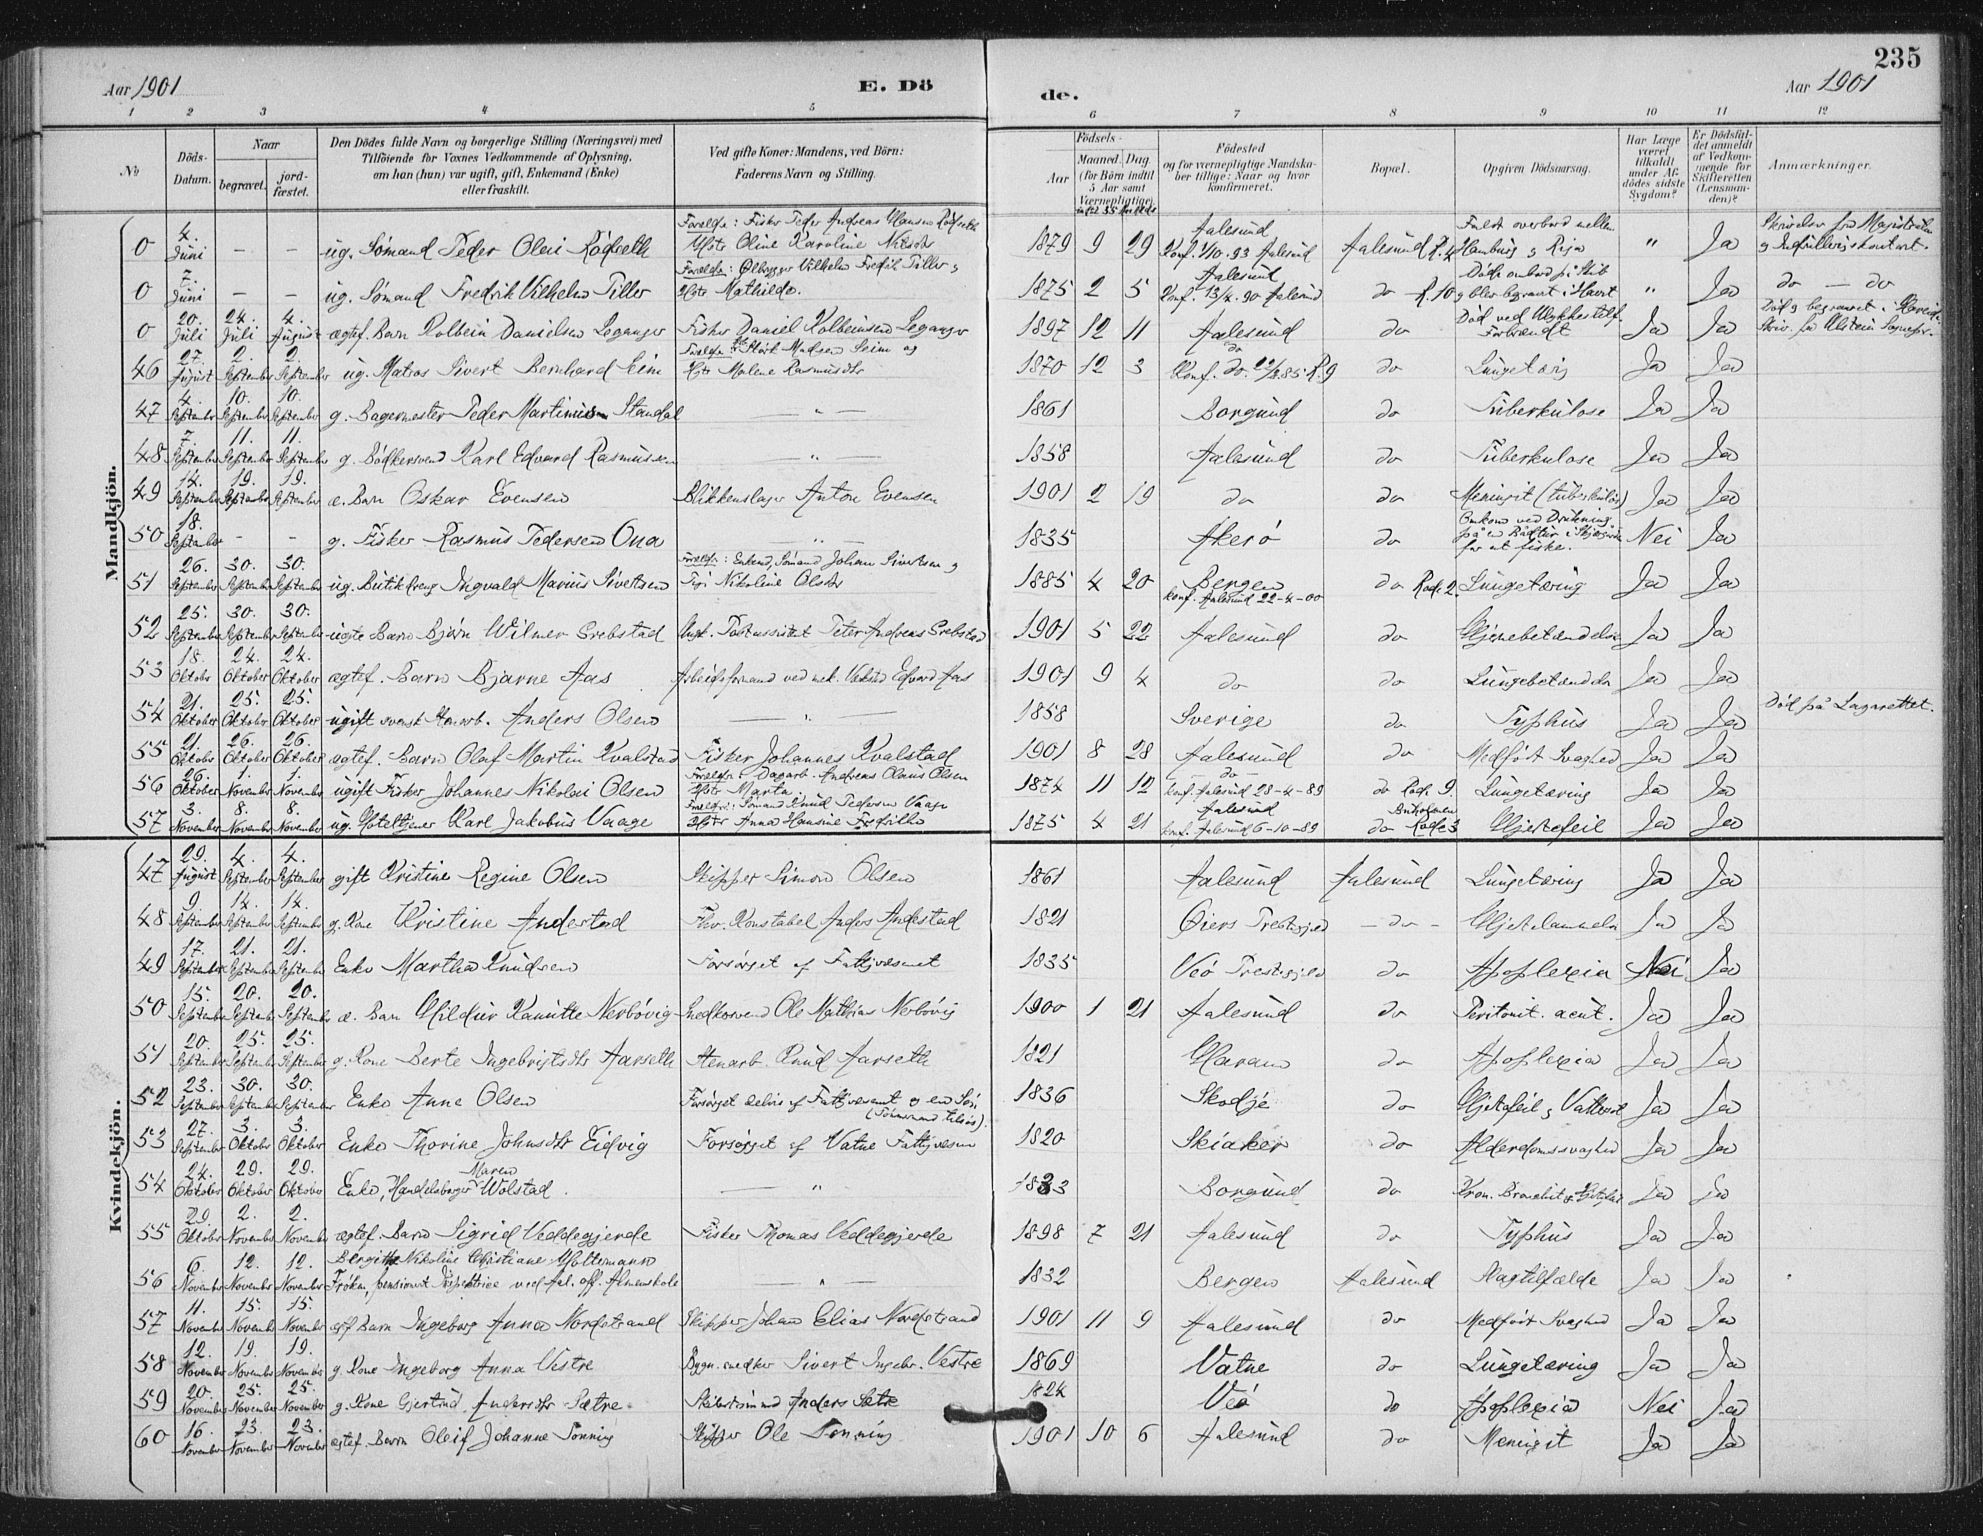 235
Aar 1901
E. Dö
de.
Aar 1901
1 2 3 4 5 6 7 8 9 10 11 12
№
Döds-Datum.
Naar
begravet.
jord-fæstet.
Den Dödes fulde Navn og borgerlige Stilling (Næringsvei) med
Tilföiende for Voxnes Vedkommende af Oplysning,
om han (hun) var ugift, gift, Enkemand (Enke)
eller fraskilt.
Ved gifte Koner: Mandens, ved Börn:
Faderens Navn og Stilling.
Födsels-
Aar
Maaned. Dag.
(for Börn indtil
5 Aar samt
Værnepligtige)
Födested
og for værnepligtige Mandska-
ber tillige: Naar og hvor
konfirmeret.
Bopæl.
Opgiven Dödsaarsag.
Har Læge
været
tilkaldt
under Af-
dödes sidste
Sygdom?
Er Dödsfal-
det anmeldt
af Vedkom-
mende for
Skifteretten
(Lensman-
den)?
Anmærkninger.
Mandkjön.
0 4. Juni – – ug. Sömand Peder Olai Rödseth Forældre: Fisker Peder Andreas Hansen Rödseth Hstr Oline Karoline 1879 9 29 Aalesund Konf. 1/10.93 Aalesund Aalesund R.4 Faldt overbord mellem Hamburg og Riga " Ja Skrivelse fra Magistraten
0 7. Juni – – ug. Sömand Fredrik Vilhelm Tiller Forældre: Ölbrygger Vilhelm Fredrik Tiller og Hstr Mathilde. 1875 2 5 Aalesund Konf. Aalesund do R.10 Döde ombord på Skib og blev begravet i Havet " Ja do – do
0 20. Juli 24. Juli 4. August ægtef. Barn Kolbein Danielsen Leganger Fisker Daniel Kolbeinsen Leganger 1897 12 11 Aalesund do Död ved Ulykkestilf. Forbrændt Ja Ja Död og begravet i
46 27. August 2. September 2. September ug. Matros Sivert Bernhard Seim Forældre: Madsen Seim og Hstr Malene Rasmusdtr 1870 12 3 do Konf. do. R.9 do Lungetæring Ja Ja
47 4. September 10. September 10. September g. Bagermester Peder Martinus Standal – " – 1861 Borgund do Tuberkulose Ja Ja
48 7. September 11. September 11. September g. Bödkersvend Karl Edvard Rasmussen – " – 1858 Aalesund do Tuberkulose Ja Ja
49 14. September 19. September 19. September æ. Barn Oskar Evensen Blikkenslager Anton Evensen 1901 2 19 do do Meningit (tuberkulös) Ja Ja
50 18. September – – g. Fisker Rasmus Pedersen Ona – " – 1835 Akerö do Omkom ved Drukning på en Bådtur i for at fiske. Nei Ja
51 26. September 30. September 30. September ug. Butikdreng Ingvald Marius Sivertsen Forældre: Enkemd, Sömand Johan Sivertsen og Nikoline Olsdtr 1885 4 20 Bergen konf. Aalesund 22-4-00 do Rode 2. Lungetæring Ja Ja
52 25. September 30. September 30. September uegte Barn Björn Wilmer Grebstad Ungk. Peter Andreas Grebstad 1901 5 22 Aalesund do Hjernebetændelse Ja Ja
53 18. Oktober 24. Oktober 24. Oktober ægtef. Barn Bjarne Aas Arbeidsformand ved mek. Værksted Edvard Aas 1901 9 4 do do Lungebetændelse Ja Ja
54 21. Oktober 25. Oktober 25. Oktober ugift svensk Stenarb. Anders Olsen – " – 1858 Sverige do Typhus Ja Ja Död på Lazarettet.
55 21. Oktober 26. Oktober 26. Oktober ægtef. Barn Olaf Martin Kvalstad Fisker Johannes Kvalstad 1901 8 28 Aalesund do Medfödt Svaghed Ja Ja
56 26. Oktober 1. November 1. November ugift Fisker Johannes Nikolai Olsen Forældre: Dagarb. Andreas Olaus Olsen Hstr Marta 1874 11 12 do konf. Aalesund 28-4-89 do Rode 9. Lungetæring Ja Ja
57 3. November 8. November 8. November ug. Hoteltjener Karl Jakobus Vaage Forældre: Sömand Knud Pedersen Vaage Hstr Anna Hansine 1875 4 21 Aalesund konf. Aalesund 6-10-89 do Rode 3 Hjertefeil Ja Ja
Kvindekjön.
47 29. August 4. September 4. September gift Kristine Regine Olsen Skipper Simon Olsen 1861 Aalesund Aalesund Lungetæring Ja Ja
48 9. September 14. September 14. September g. Kone Kristine Anderstad Fhv. Konstabel Anders Anderstad 1821 Öiers Prestegjeld – do – Hjertelammelse Ja Ja
49 17. September 21. September 21. September Enke Martha Knudsen Forsörget af Fattigvæsenet 1835 Veö Prestegjeld do Apoplexia Nei Ja
50 15. September 20. September 20. September æ. Barn Hildur Kamitte Nerbövig Snedkersvend Ole Mathias Nerbövig 1900 1 21 Aalesund do Peritonit. acut. Ja Ja
51 20. September 25. September 25. September g. Kone Berte Ingebrigtsdtr Aarseth Stenarb. Knud Aarseth 1821 Haram do Apoplexia Ja Ja
52 23. September 30. September 30. September Enke Anne Olsen Forsörget delvis af Fattigvæsenet og en Sön (Sömand tilsjös). 1836 Skodje do Hjertefeil og Vattersot Ja Ja
53 27. September 3. Oktober 3. Oktober Enke Thorine Johnsdtr Eidvig Forsörget af Vatne Fattigvæsen 1820 Skiaker do Alderdomssvaghed Ja Ja
54 24. Oktober 29. Oktober 29. Oktober Enke, Handelsborger Maren Wolstad – " – 1833 Borgund do Kron. Bronchit og Hjertefeil Ja Ja
55 29. Oktober 2. November 2. November ægtef. Barn Sigrid Veddegjerde Fisker Thomas Veddegjerde 1898 7 21 Aalesund do Typhus Ja Ja
56 6. November 12. November 12. November Bergitte Nikoline Christiane Holtermann Fröken, pensioneret ved Aal. off. Almenskole – " – 1832 Bergen Aalesund Slagtilfælde Ja Ja
57 11. November 15. November 15. November ægf Barn Ingeborg Anna Nordstrand Skipper Johan Elias Nordstrand 1901 11 9 Aalesund do Medfödt Svaghed Ja Ja
58 12. November 19. November 19. November g. Kone Ingeborg Anna Vestre Bygn. snedker Sivert Ingebr. Vestre 1869 Vatne do Lungetæring Ja Ja
59 20. November 25. November 25. November g. Kone Gjertrud Andersdtr Sætre Skibstömmermand Anders Sætre 1824 Veö do Apoplexia Nei Ja
60 16. November 23. November 23. November ægtef. Barn Oleif Johanne Tonning Skipper Ole Tonning 1901 10 6 Aalesund do Meningit Ja Ja